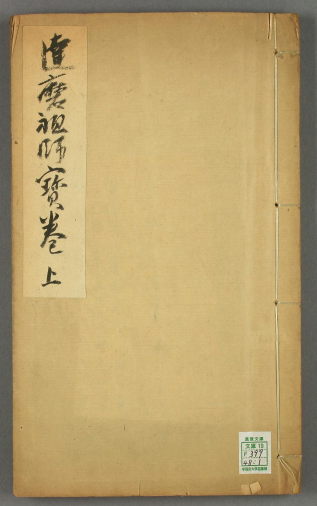 達磨祖師寳卷 上
風陵文庫
文庫19
F 399
48:1
早稲田大学図書館